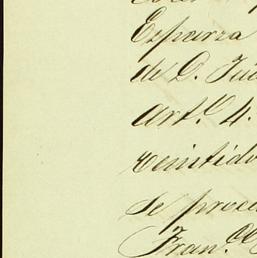 Esparza
de D. Jua
Art.º 4.
remitido
se proce
Fran.co